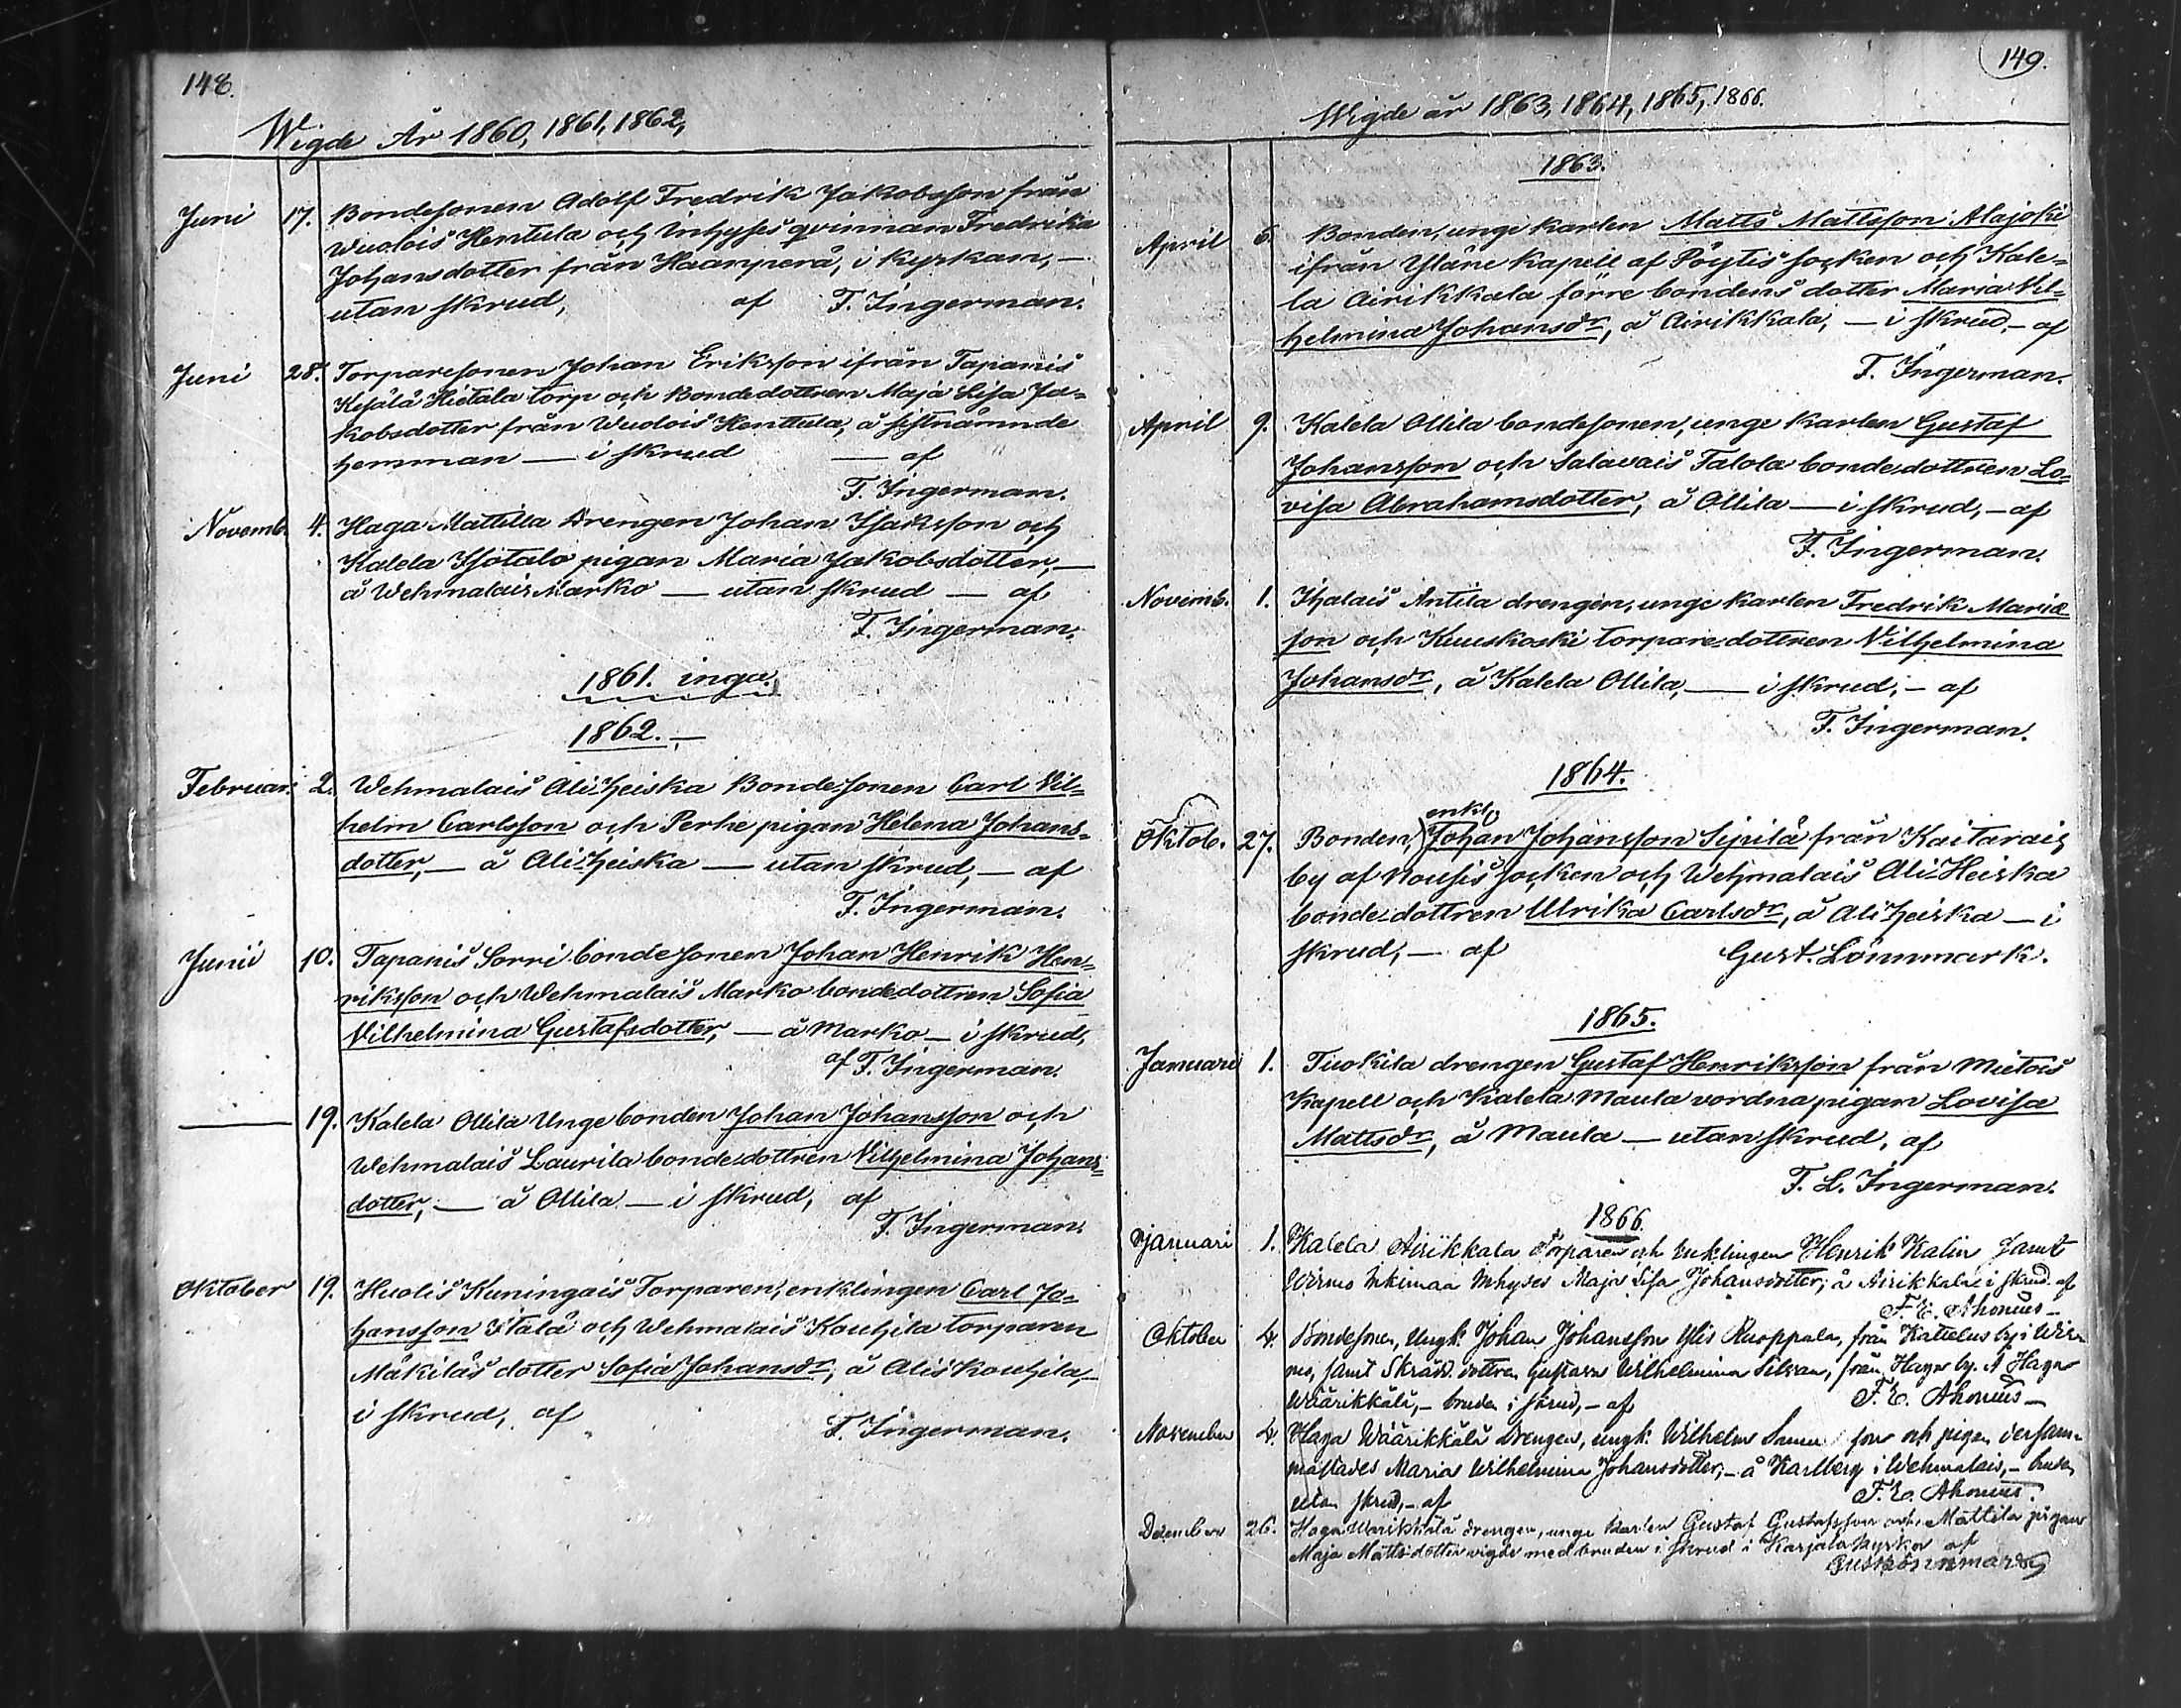 148.
Wigde År 1860, 1861, 1862,
Juni 17. Bondesonen Adolf Fredrik Jakobsson från
Wuolois Hentula och Inhyses qvinnan Fredrika
Johansdotter från Haanperä, i kyrkan, —
utan skrud, af F. Ingerman.
Juni 28. Torparesonen Johan Eriksson ifrån Tapanis
Kesälä Hietala torp och Bondedottren Maja Lisa Ja-
kobsdotter från Wuolois Henttula, å sistnämnde
hemman — i skrud — af
F. Ingerman.
Novemb. 4. Haga Mattilla Drengen Johan Isaksson och
Kalela Isotalo pigan Maria Jakobsdotter, —
å Wehmalais Marko — utan skrud — af
F. Ingerman.
1861. inga.
1862. —
Februari 2. Wehmalais Ali-heiska Bondesonen Carl Vil-
helm Carlsson och Perhe pigan Helena Johans-
dotter, — å Ali-heiska — utan skrud, — af
F. Ingerman.
Junii 10. Tapanis Sorri bondesonen Johan Henrik Hen-
riksson och Wehmalais Marko bondedottren Sofia
Vilhelmina Gustafsdotter, — å Marko — i skrud,
af F. Ingerman.
— 19. Kalela Ollila Unge bonden Johan Johansson och
Wehmalais Laurila bondedottren Vilhelmina Johans-
dotter, — å Ollila — i skrud, af
F. Ingerman.
Oktober 19. Huolis Kuningais Torparen, enklingen Carl Jo-
hansson Itälä och Wehmalais Kouhila torparen
Mäkiläs dotter Sofia Johansdr, å Alis Kouhila, —
i skrud, af F. Ingerman.
149.
Wigde år 1863, 1864, 1865, 1866.
1863.
April 6. Bonden, unge karlen Matts Mattsson Alajoki
ifrån Yläne kapell af Pöytis socken och Kale-
la Airikkala förre bondens dotter Maria Vil-
helmina Johansdr, å Airikkala, — i skrud, — af
F. Ingerman.
April 9. Kalela Ollila bondesonen, unge karlen Gustaf
Johansson och Salavais Talola bondedottren Lo-
visa Abrahamsdotter, å Ollila — i skrud, — af
F. Ingerman.
Novemb. 1. Ihalais Antila drengen, unge karlen Fredrik Mariæ
son och Kuuskoski torparedottren Vilhelmina
Johansdr, å Kalela Ollila, — i skrud, — af
F. Ingerman.
1864.
enkl.
Oktob. 27. Bonden, Johan Johansson Sipilä från Kaitarais
by af Nousis socken och Wehmalais Ali-Heiska
bonde-dottren Ulrika Carlsdr, å Ali heiska — i
skrud, — af Gust. Lönnmark.
1865.
Januari 1. Tuokila drengen Gustaf Henriksson från Mietois
kapell och Kalela Maula vordna pigan Lovisa
Mattsdr, å Maula — utan skrud, af
F. L. Ingerman.
1866.
Januari 1. Kalela Airikkala Torparen och Enklingen Henrik Kalin samt
Wirmo Inkimaa Inhyses Maja Lisa Johansdotter; å Airikkala i skrud af
F. E. Ahonius —
Oktober 4. Bondesonen, Ungk. Johan Johansson Ylis Ruoppala, från Kattelus by i Wir-
mo, samt Skräd. dottren Gustava Wilhelmina Silvan, från Haga by. Å Haga
Wäärikkälä, — bruden i skrud, — af F. E. Ahonius —
November 4. Haga Wäärikkälä Drengen, ungk. Wilhelm son och pigan dersam-
mastädes Maria Wilhelmina Johansdotter, — å Karlberg i Wehmalais, — bruden
utan skrud, — af F. E. Ahonius.
December 26. Haga Wärikkälä drengen, unge karlen Gustaf Gustafsson och Mattila pigan
Maja Mattsdotter vigde med bruden i skrud i Karjala kyrka af
Gust. Lönnmark